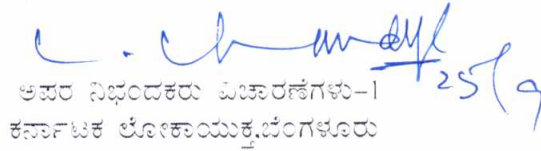 25/9
ಅಪರ ನಿಭಂದಕರು ವಿಚಾರಣೆಗಳು-1
ಕರ್ನಾಟಕ ಲೋಕಾಯುಕ್ತ,ಬೆಂಗಳೂರು